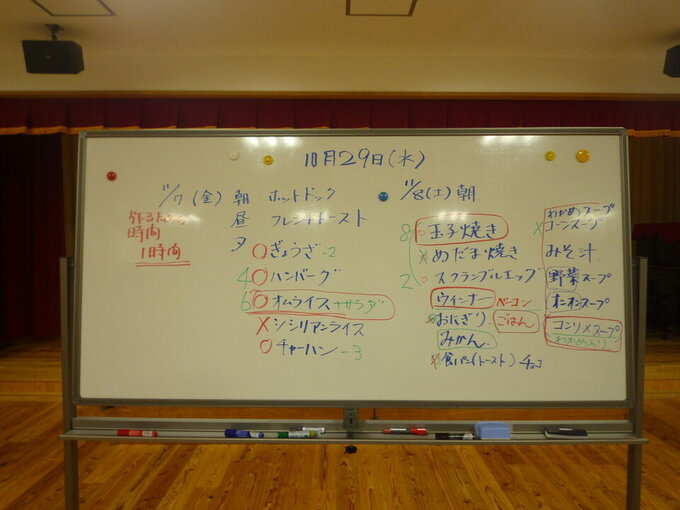 10月29日(水)
11/7(金) 朝 ホットドック
昼 フレンチトースト
夕
作るための
時間
1時間
○ぎょうざ-2
4○ハンバーグ
6○オムライス+サラダ
×シシリアンライス
○チャーハン-3
11/8(土)朝
8○玉子焼き
×めだま焼き
2○スクランブルエッグ
ウィンナー ベーコン
おにぎり ごはん
みかん
×食パン(トースト) チョコ
わかめスープ
×コーンスープ
みそ汁
野菜スープ
オニオンスープ
コンソメスープ
わかめ入り